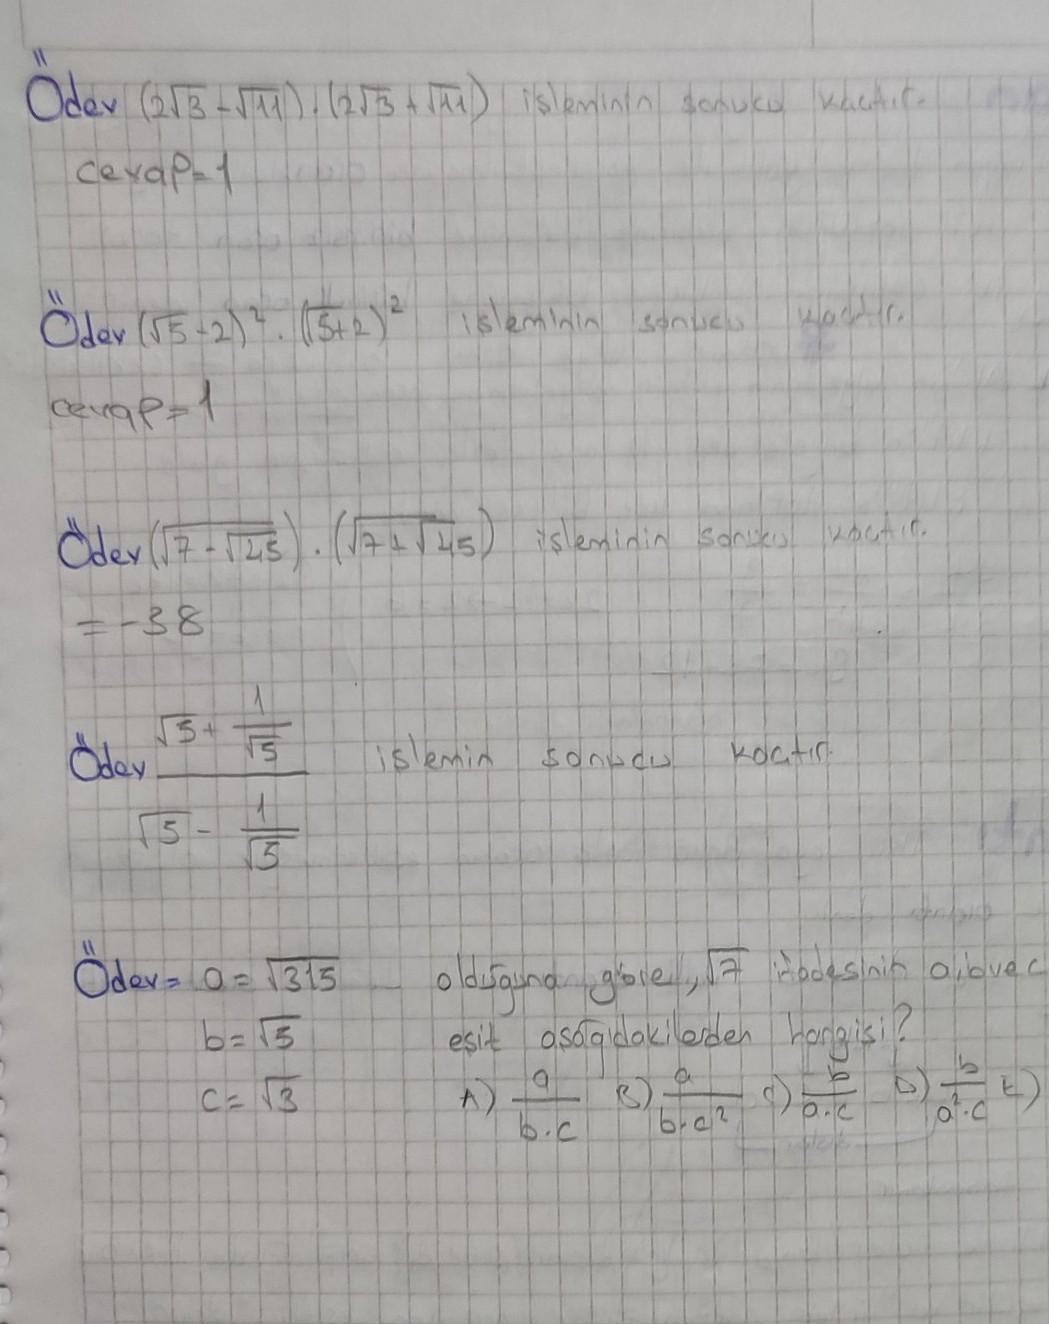 Ödev (2√3 - √11) . (2√3 + √11) işleminin sonucu kaçtır.
cevap = 1
Ödev (√5 - 2)² . (√5 + 2)² işleminin sonucu kaçtır.
cevap = 1
Ödev (√7 - √45) . (√7 + √45) işleminin sonucu kaçtır.
= -38
√5 + 1/√5
Ödev işlemin sonucu kaçtır.
√5 - 1/√5
Ödev = a = √315 olduğuna göre, √7 ifadesinin a, b ve c
b = √5 eşit aşağıdakilerden hangisi?
c = √3 A) a/b.c B) a/b.c² C) b/a.c D) b/a².c E)